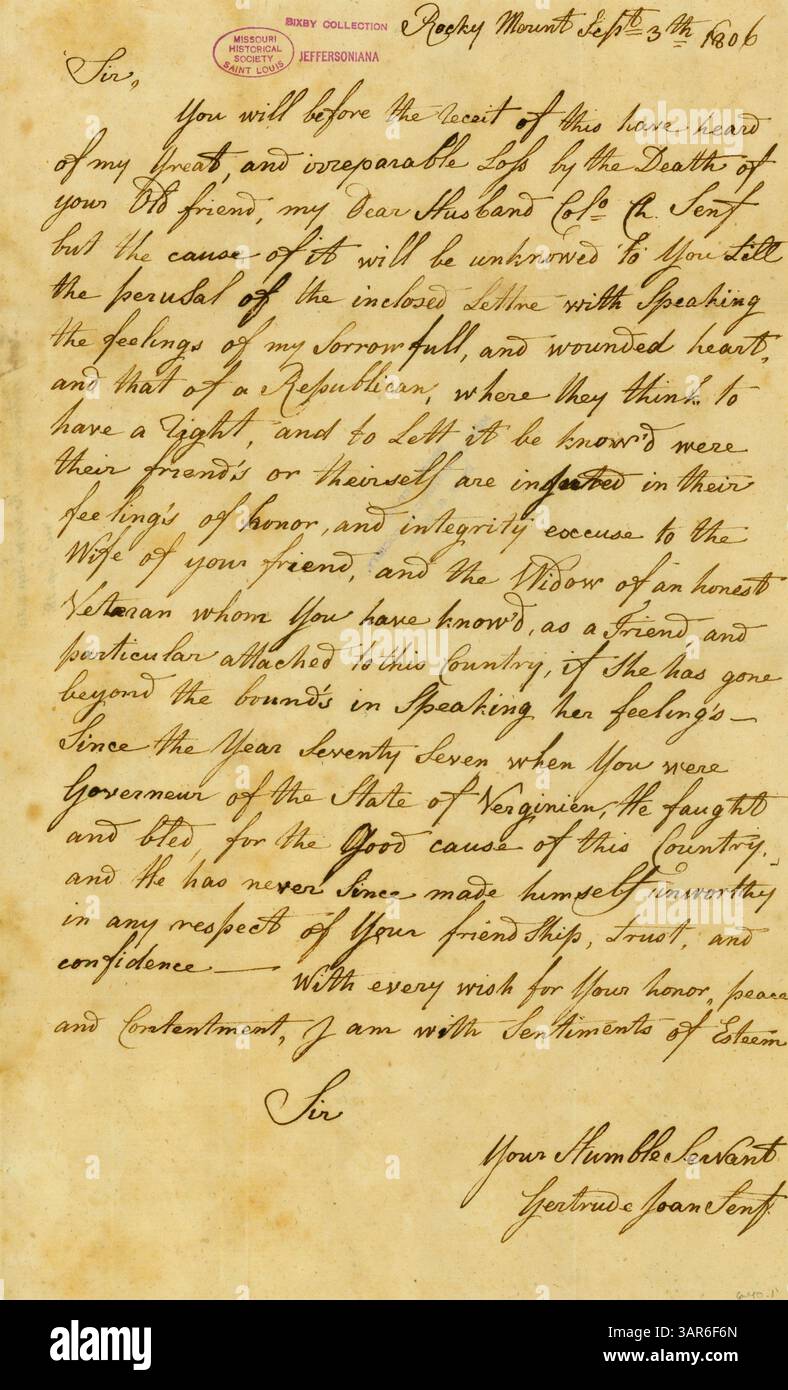 BIXBY COLLECTION
MISSOURI
HISTORICAL
SOCIETY
SAINT LOUIS
JEFFERSONIANA
Rocky Mount Sept. 3th 1806
Sir,
You will before the receit of this have heard
of my Great, and irreparable Loss by the Death of
your Old friend, my Dear Husband Colo. Ch. Senf
but the cause of it will be unknowed to You till
the perusal of the inclosed Lettre with Speaking
the feelings of my Sorrowfull, and wounded heart,
and that of a Republican, where they think to
have a right, and to Lett it be know'd were
their friend's or theirself are injured in their
feeling's of honor, and integrity excuse to the
Wife of your friend, and the Widow of an honest
Veteran whom You have know'd, as a Friend and
particular attached to this Country, if She has gone
beyond the bound's in Speaking her feeling's —
Since the Year Seventy Seven when You were
Governeur of the State of Verginien, He faught
and bled, for the Good cause of this Country,
and He has never Since made himself unworthy
in any respect of Your friendship, trust, and
confidence —
With every wish for Your honor, peace
and Contentment, I am with Sentiments of Esteem
Sir
Your Humble Servant
Gertrude Joan Senf
alamy
Image ID: 3AR6F6N
www.alamy.com